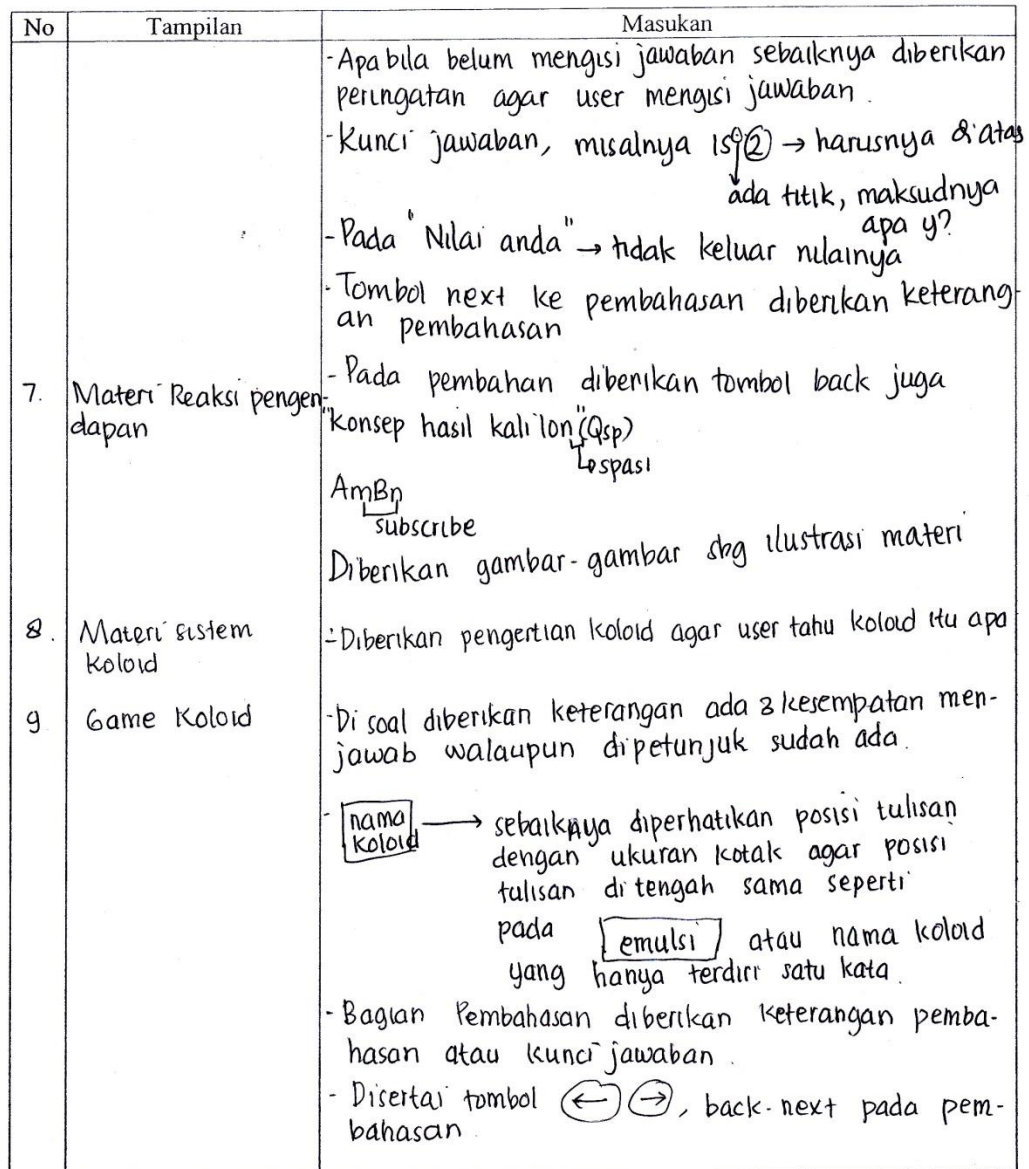 No Tampilan Masukan
-Apabila belum mengisi jawaban sebaiknya diberikan
peringatan agar user mengisi jawaban.
-Kunci jawaban, misalnya 1s② → harusnya di atas
ada titik, maksudnya
apa y?
-Pada "Nilai anda" → tidak keluar nilainya
-Tombol next ke pembahasan diberikan keterang-
an pembahasan
-Pada pembahan diberikan tombol back juga
7. Materi Reaksi pengen-
dapan
"Konsep hasil kali ion"(Qsp)
spasi
AmBn
subscribe
Diberikan gambar-gambar sbg ilustrasi materi
8. Materi sistem
koloid
-Diberikan pengertian koloid agar user tahu koloid itu apa
9. Game Koloid
-Di soal diberikan keterangan ada 3 kesempatan men-
jawab walaupun dipetunjuk sudah ada.
- nama
koloid → sebaiknya diperhatikan posisi tulisan
dengan ukuran kotak agar posisi
tulisan di tengah sama seperti
pada emulsi atau nama koloid
yang hanya terdiri satu kata.
-Bagian Pembahasan diberikan keterangan pemba-
hasan atau kunci jawaban.
- Disertai tombol ← →, back-next pada pem-
bahasan.